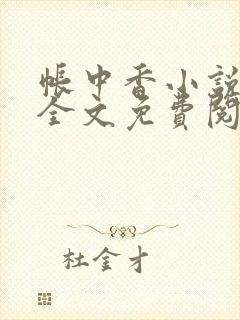 帐中香小説
全文免費閱
杜金才